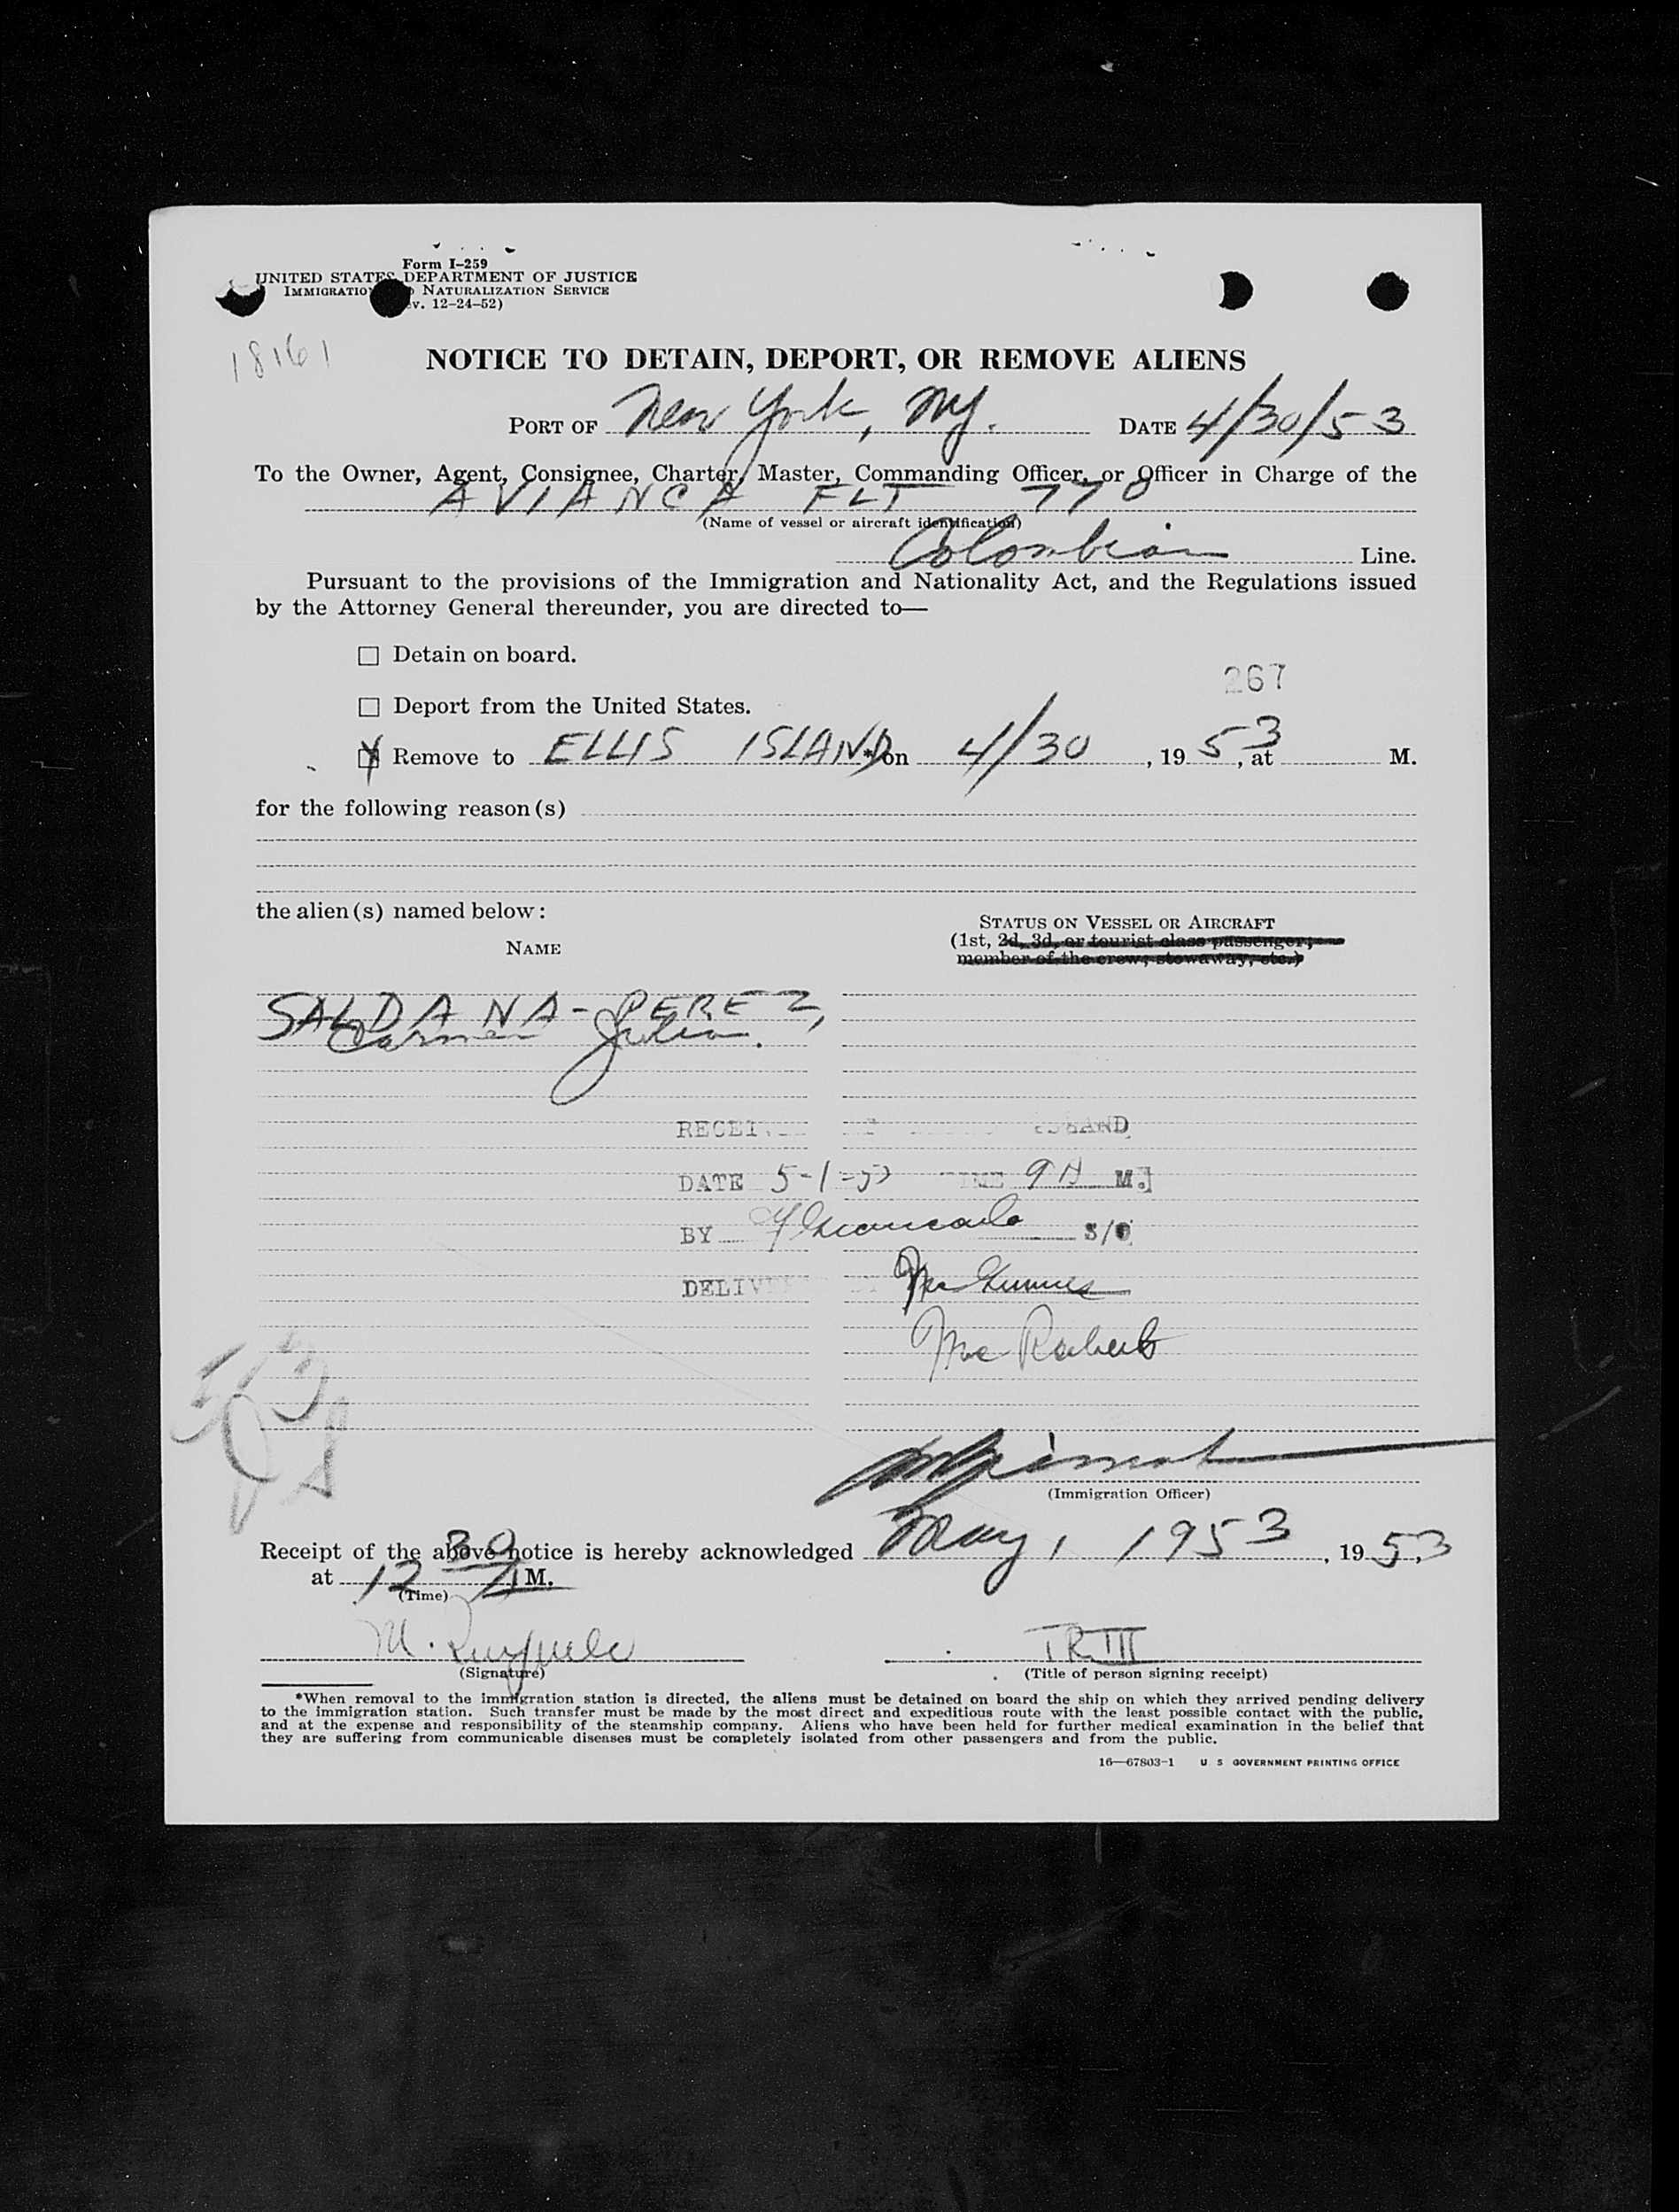 Form I-259
UNITED STATES DEPARTMENT OF JUSTICE
IMMIGRATION NATURALIZATION SERVICE
v. 12-24-52)
18161
NOTICE TO DETAIN, DEPORT, OR REMOVE ALIENS
PORT OF New York, NY. DATE 4/30/53
To the Owner, Agent, Consignee, Charter, Master, Commanding Officer, or Officer in Charge of the
AVIANCA FLT 770
(Name of vessel or aircraft identification)
Colombian Line.
Pursuant to the provisions of the Immigration and Nationality Act, and the Regulations issued
by the Attorney General thereunder, you are directed to—
☐ Detain on board.
267
☐ Deport from the United States.
☒ Remove to ELLIS ISLAND *on 4/30, 1953, at M.
for the following reason(s)
the alien(s) named below:
NAME
STATUS ON VESSEL OR AIRCRAFT
(1st, 2d, 3d, or tourist class passenger;
member of the crew; stowaway, etc.)
SALDANA-PEREZ,
Carmen Julia.
RECEI ISLAND
DATE 5-1-53 TIME 9 A M.
BY S/O
DELIV
(Immigration Officer)
Receipt of the above notice is hereby acknowledged May 1 1953, 1953
at 12 30 A M.
(Time)
M.
(Signature)
TR III
(Title of person signing receipt)
*When removal to the immigration station is directed, the aliens must be detained on board the ship on which they arrived pending delivery
to the immigration station. Such transfer must be made by the most direct and expeditious route with the least possible contact with the public,
and at the expense and responsibility of the steamship company. Aliens who have been held for further medical examination in the belief that
they are suffering from communicable diseases must be completely isolated from other passengers and from the public.
16—67803-1 U S GOVERNMENT PRINTING OFFICE